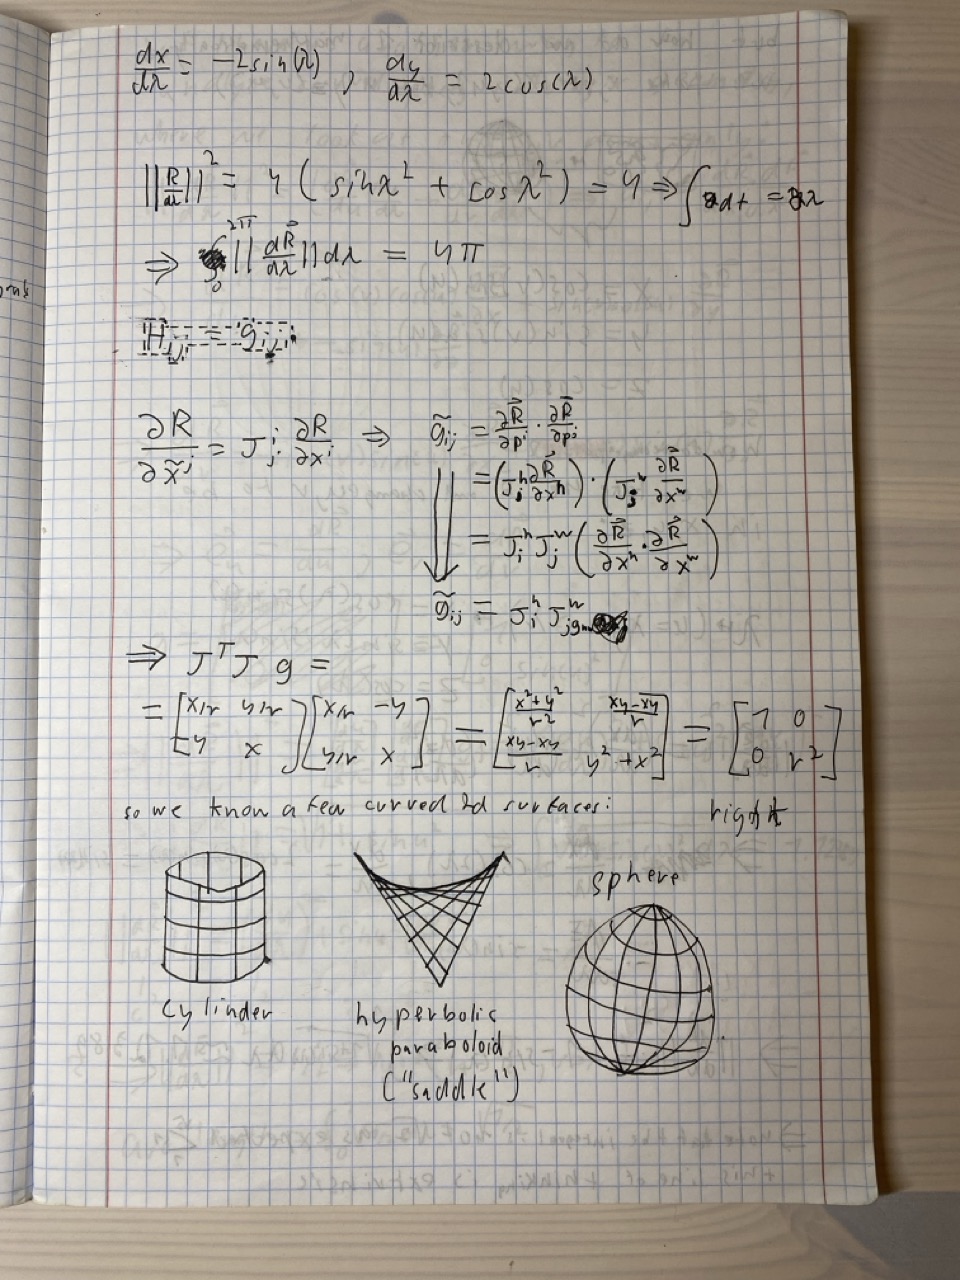 dx/dλ = -2sin(λ), dy/dλ = 2cos(λ)
||R/dλ||² = 4 (sinλ² + cosλ²) = 4 ⇒ ∫2dt = 2λ
⇒ ∫₀^2π ||dR⃗/dλ||dλ = 4π
H_ij = g_ij
∂R/∂x̃^j = J_j^i ∂R/∂x^i ⇒ g̃_ij = ∂R⃗/∂p^i · ∂R⃗/∂p^j
= (J_i^h ∂R⃗/∂x^h) · (J_j^w ∂R⃗/∂x^w)
= J_i^h J_j^w (∂R⃗/∂x^h · ∂R⃗/∂x^w)
g̃_ij = J_i^h J_j^w g
⇒ J^T J g =
= [x/r y/r; -y x] [x/r -y; y/r x] = [x²+y²/r² xy-xy/r; xy-xy/r y²+x²] = [1 0; 0 r²]
so we know a few curved 2d surfaces: right
sphere
cylinder
hyperbolic
paraboloid
("saddle")